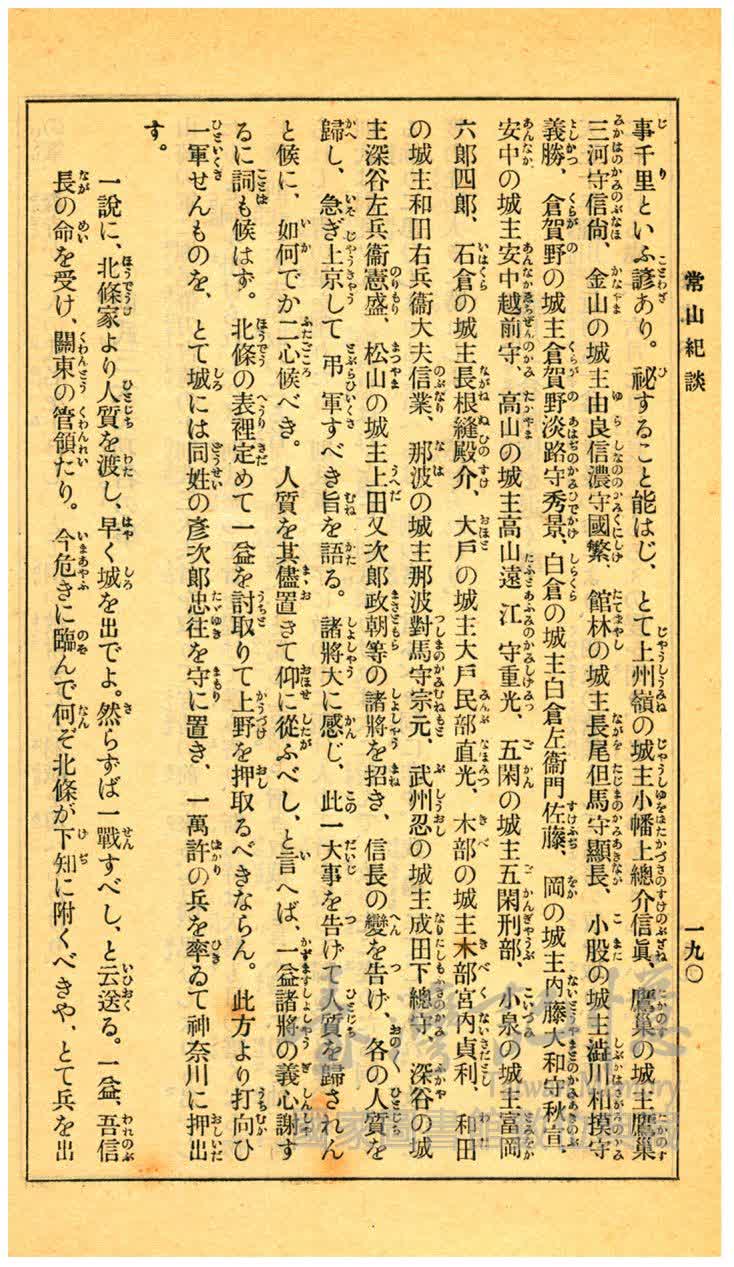 常山紀談
一九〇
事千里といふ諺あり。祕すること能はじ、とて上州嶺の城主小幡上總介信眞、鷹巢の城主鷹巢
三河守信尙、金山の城主由良信濃守國繁、館林の城主長尾但馬守顯長、小股の城主澁川相摸守
義勝、倉賀野の城主倉賀野淡路守秀景、白倉の城主白倉左衞門佐藤、岡の城主內藤大和守秋宣、
安中の城主安中越前守、高山の城主高山遠江守重光、五閑の城主五閑刑部、小泉の城主富岡
六郞四郞、石倉の城主長根縫殿介、大戶の城主大戶民部直光、木部の城主木部宮內貞利、和田
の城主和田右兵衞大夫信業、那波の城主那波對馬守宗元、武州忍の城主成田下總守、深谷の城
主深谷左兵衞憲盛、松山の城主上田又次郞政朝等の諸將を招き、信長の變を告げ、各の人質を
歸し、急ぎ上京して弔軍すべき旨を語る。諸將大に感じ、此一大事を告げて人質を歸されん
と候に、如何でか二心候べき。人質を其儘置きて仰に從ふべし、と言へば、一益諸將の義心謝す
るに詞も候はず。北條の表裡定めて一益を討取りて上野を押取るべきならん。此方より打向ひ
一軍せんものを、とて城には同姓の彥次郞忠往を守に置き、一萬許の兵を率ゐて神奈川に押出
す。
一說に、北條家より人質を渡し、早く城を出でよ。然らずば一戰すべし、と云送る。一益、吾信
長の命を受け、關東の管領たり。今危きに臨んで何ぞ北條が下知に附くべきや、とて兵を出